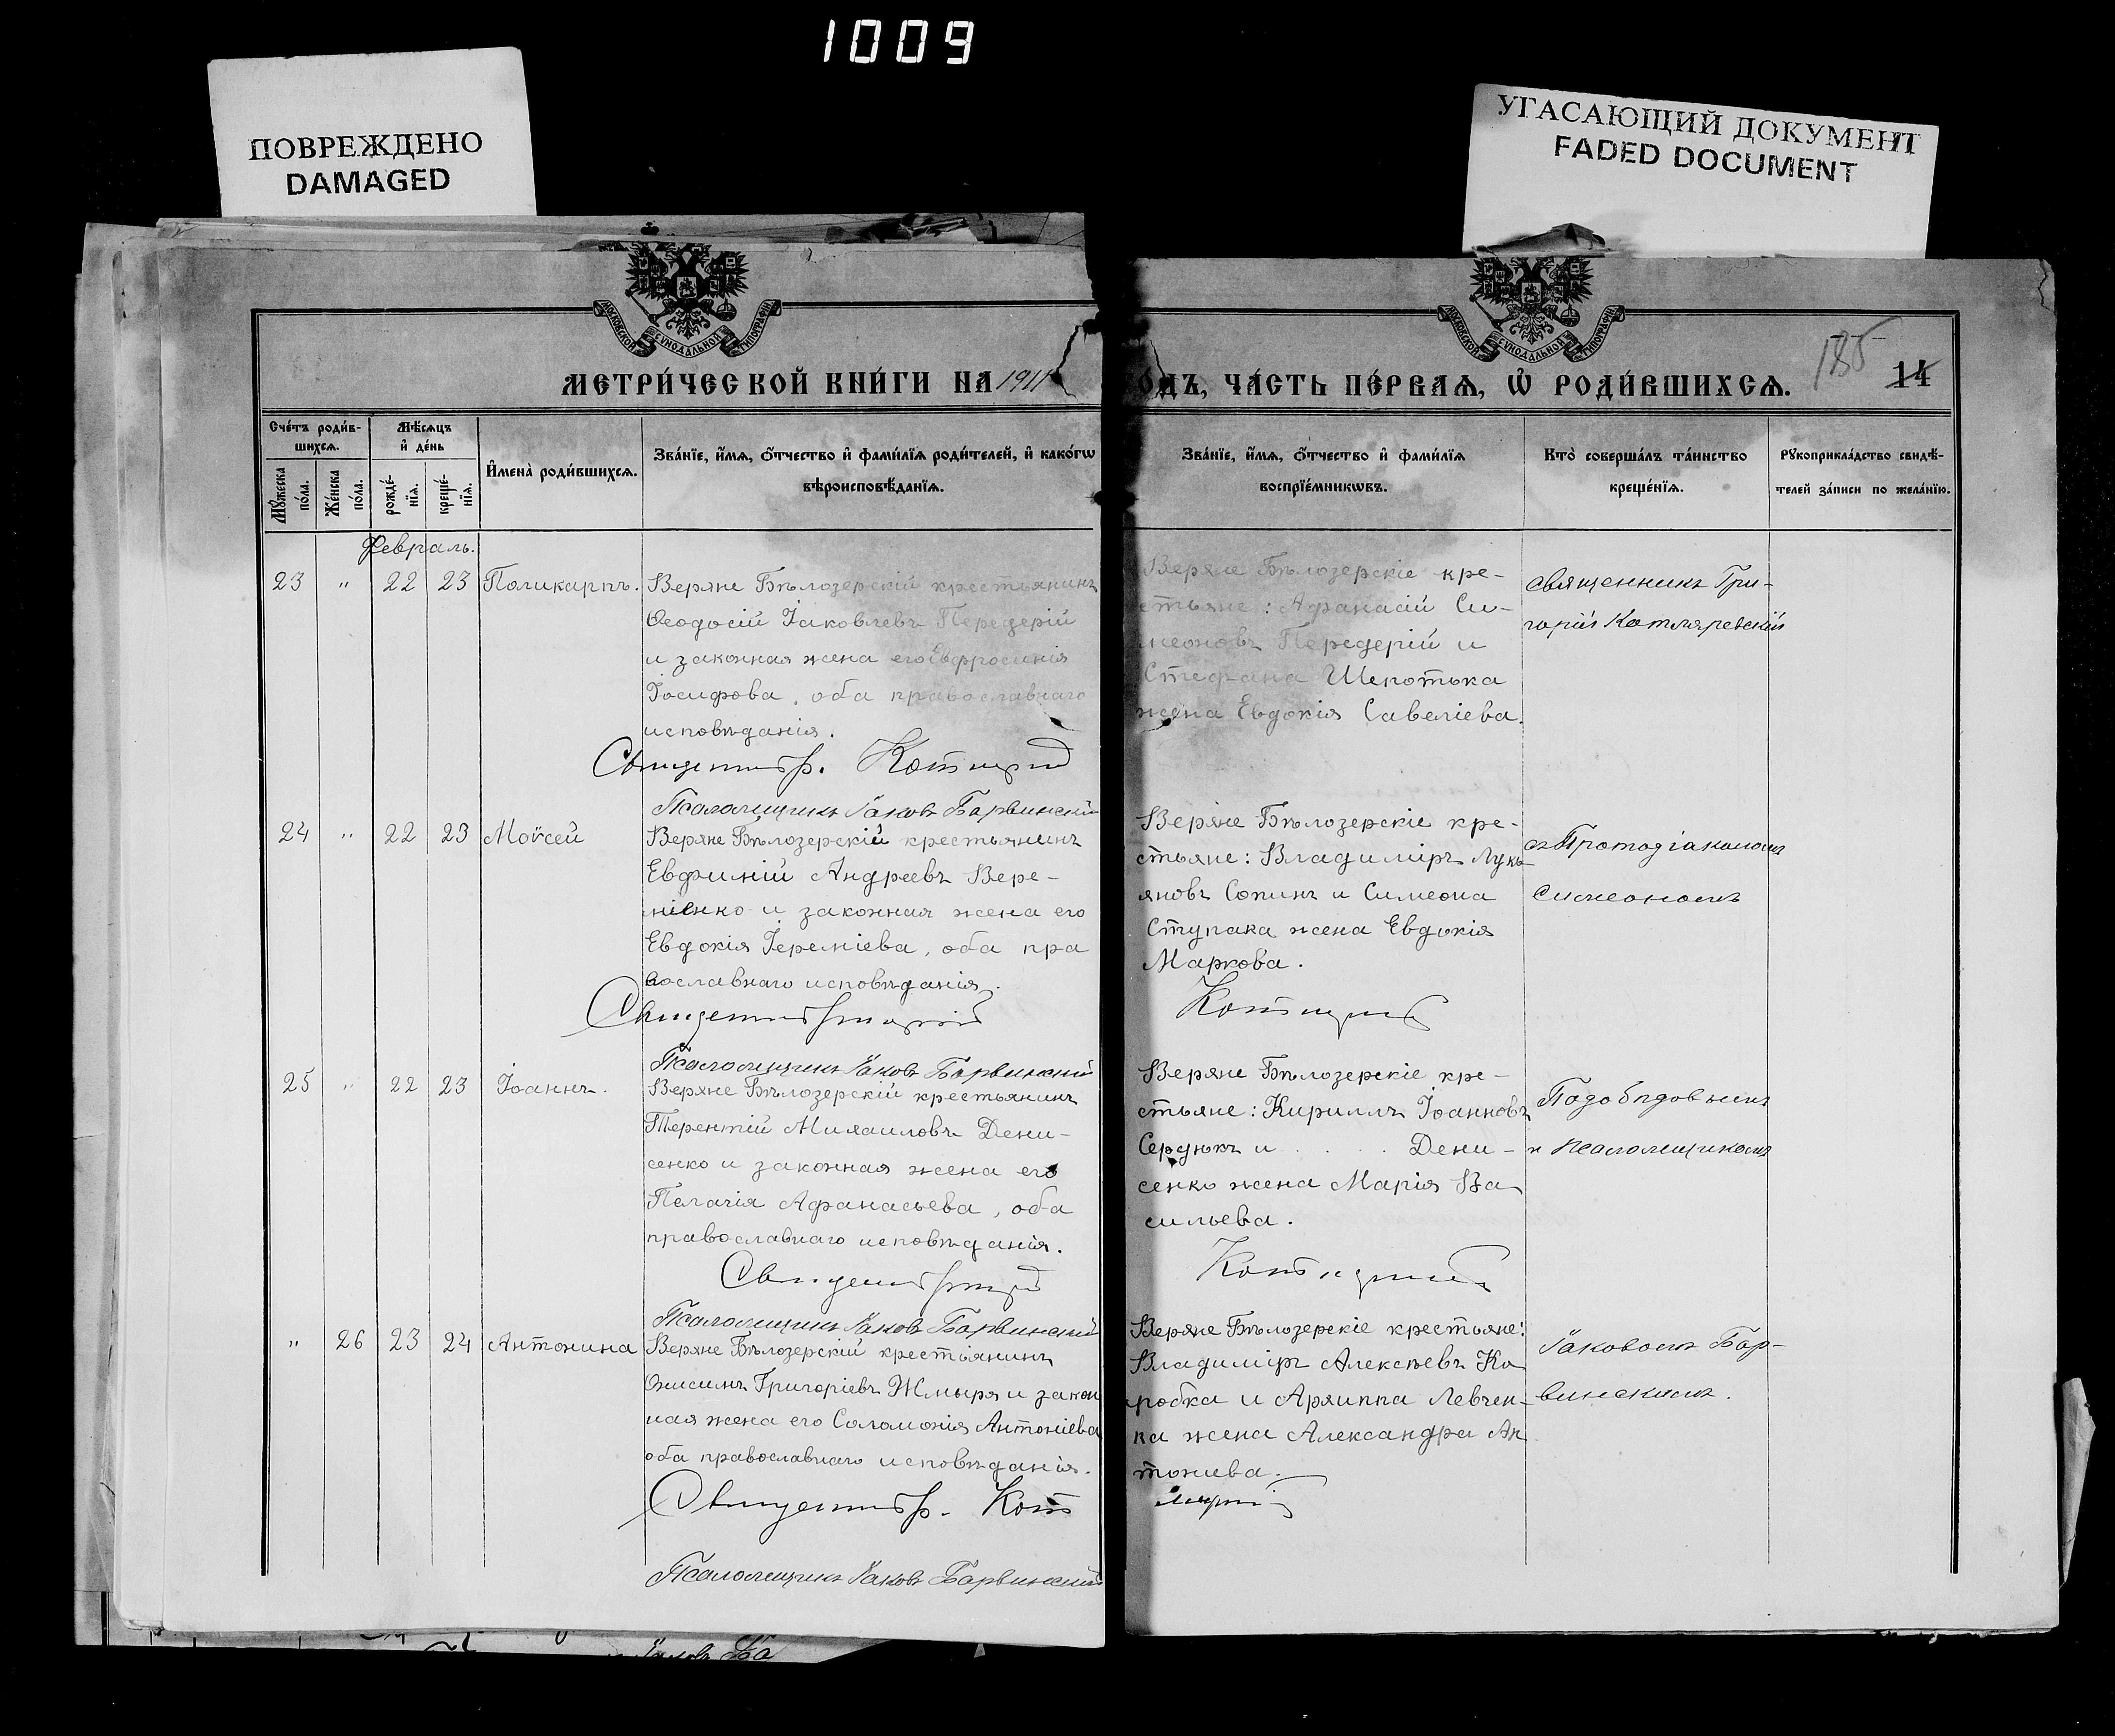 1009
ПОВРЕЖДЕНО
DAMAGED
УГАСАЮЩИЙ ДОКУМЕНТ
FADED DOCUMENT
МОСКОВСКОЙ СѴНОДАЛЬНОЙ ТИПОГРАФІИ
МОСКОВСКОЙ СѴНОДАЛЬНОЙ ТИПОГРАФІИ
МЕТРИ́ЧЕСКОЙ КНИ́ГИ НА 1911
ОДЪ, ЧА́СТЬ ПЕ́РВАѦ, Ѡ҆ РОДИ́ВШИХСѦ.
185
14
Сче́тъ роди́в-
шихсѧ.
Мꙋ́жеска по́ла.
Же́нска по́ла.
Мѣ́сѧцъ
и҆ де́нь
рожде́-
нїѧ.
креще́-
нїѧ.
И҆мена̀ роди́вшихсѧ.
Зва́нїе, и҆́мѧ, ѻ҆́тчество и҆ фами́лїѧ роди́телей, и҆ како́гѡ
вѣроисповѣ́данїѧ.
Зва́нїе, и҆́мѧ, ѻ҆́тчество и҆ фами́лїѧ
воспрїе́мникѡвъ.
Кто̀ соверша́лъ та́инство
креще́нїѧ.
Рꙋкоприкла́дство свидѣ́-
телей за́писи по жела́нїю.
Февраль.
23 " 22 23 Поликарпъ.
Веряне Бѣлозерскій крестьянинъ
Ѳеодосій Іаковлевъ Передерій
и законная жена его Евфросинія
Іосифова, оба православнаго
исповѣданія.
Веряне Бѣлозерскіе кре-
стьяне: Афанасій Си-
меоновъ Передерій и
Стефана Шепотька
жена Евдокія Савеліева.
священникъ Гри-
горій Котляревскій
Псаломщикъ Іаковъ Барвинскій
24 " 22 23 Моѵсей
Веряне Бѣлозерскій крестьянинъ
Евфимій Андреевъ Вере-
міенко и законная жена его
Евдокія Іереміева, оба пра
вославнаго исповѣданія.
Веряне Бѣлозерскіе кре-
стьяне: Владиміръ Лукь
яновъ Сопинъ и Симеона
Ступака жена Евдокія
Маркова.
съ Протодіакономъ
Симеономъ
Псаломщикъ Іаковъ Барвинскій
25 " 22 23 Іоаннъ.
Веряне Бѣлозерскій крестьянинъ
Терентій Михаиловъ Дени-
сенко и законная жена его
Пелагія Афанасьева, оба
православнаго исповѣданія.
Веряне Бѣлозерскіе кре-
стьяне: Кириллъ Іоанновъ
Сердюкъ и . . . . Дени-
сенко жена Марія Ва
сильева.
и псаломщикомъ
Псаломщикъ Іаковъ Барвинскій
" 26 23 24 Антонина
Веряне Бѣлозерскій крестьянинъ
Онисимъ Григоріевъ Жмыря и закон
ная жена его Соломонія Антоніева
оба православнаго исповѣданія.
Веряне Бѣлозерскіе крестьяне:
Владиміръ Алексѣевъ Ко
робка и Архиппа Левчен-
ка жена Александра Ан
тоніева.
Іаковомъ Бар-
винскимъ.
Псаломщикъ Іаковъ Барвинскій